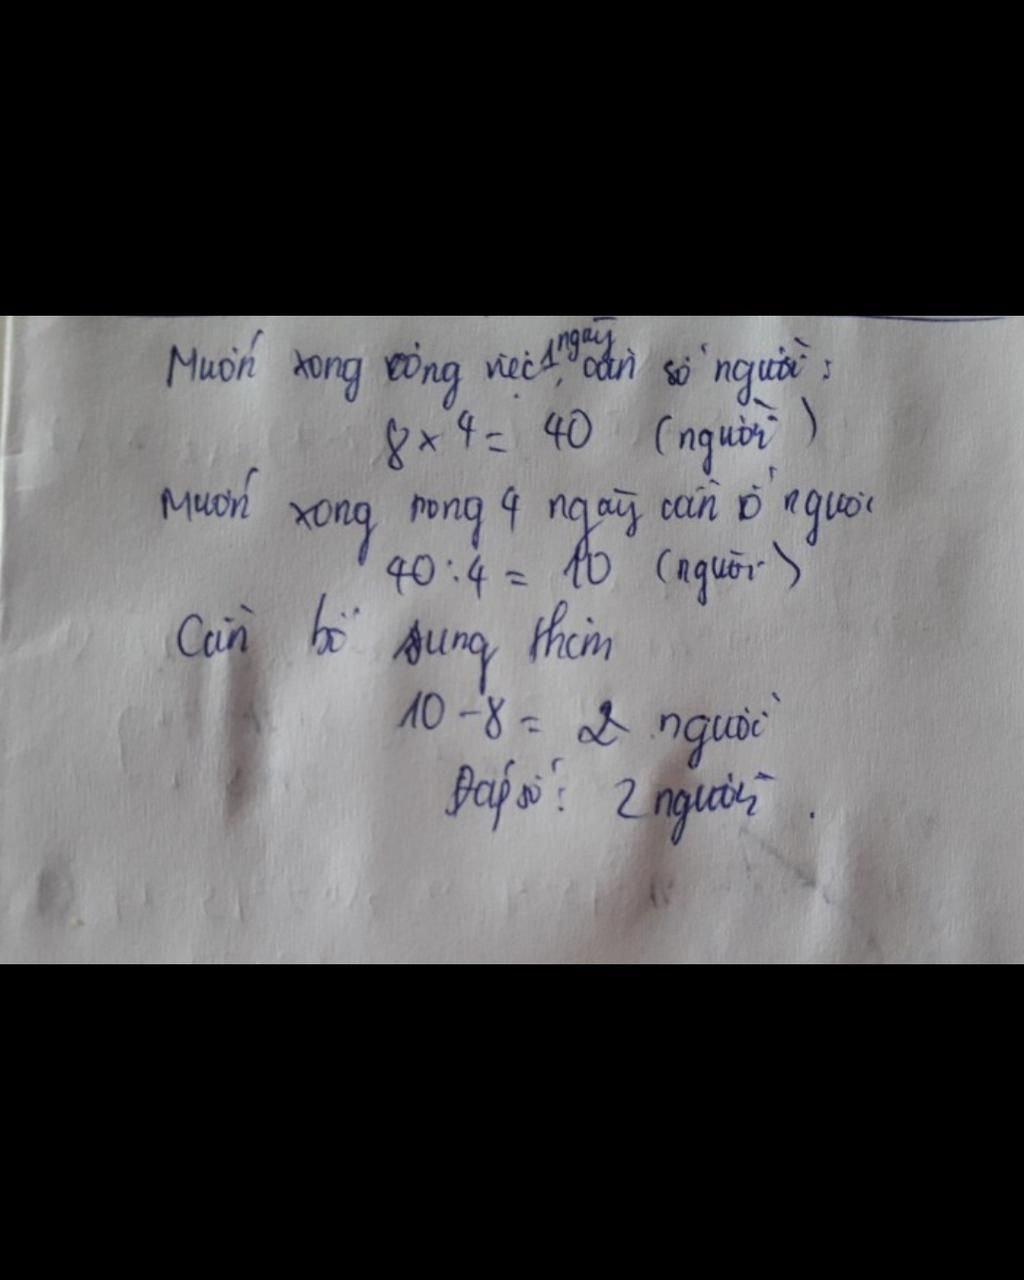 Muốn xong công việc 1 ngày cần số người:
8 x 4 = 40 (người)
Muốn xong trong 4 ngày cần số người
40 : 4 = 10 (người)
Cần bổ sung thêm
10 - 8 = 2 người
Đáp số: 2 người.